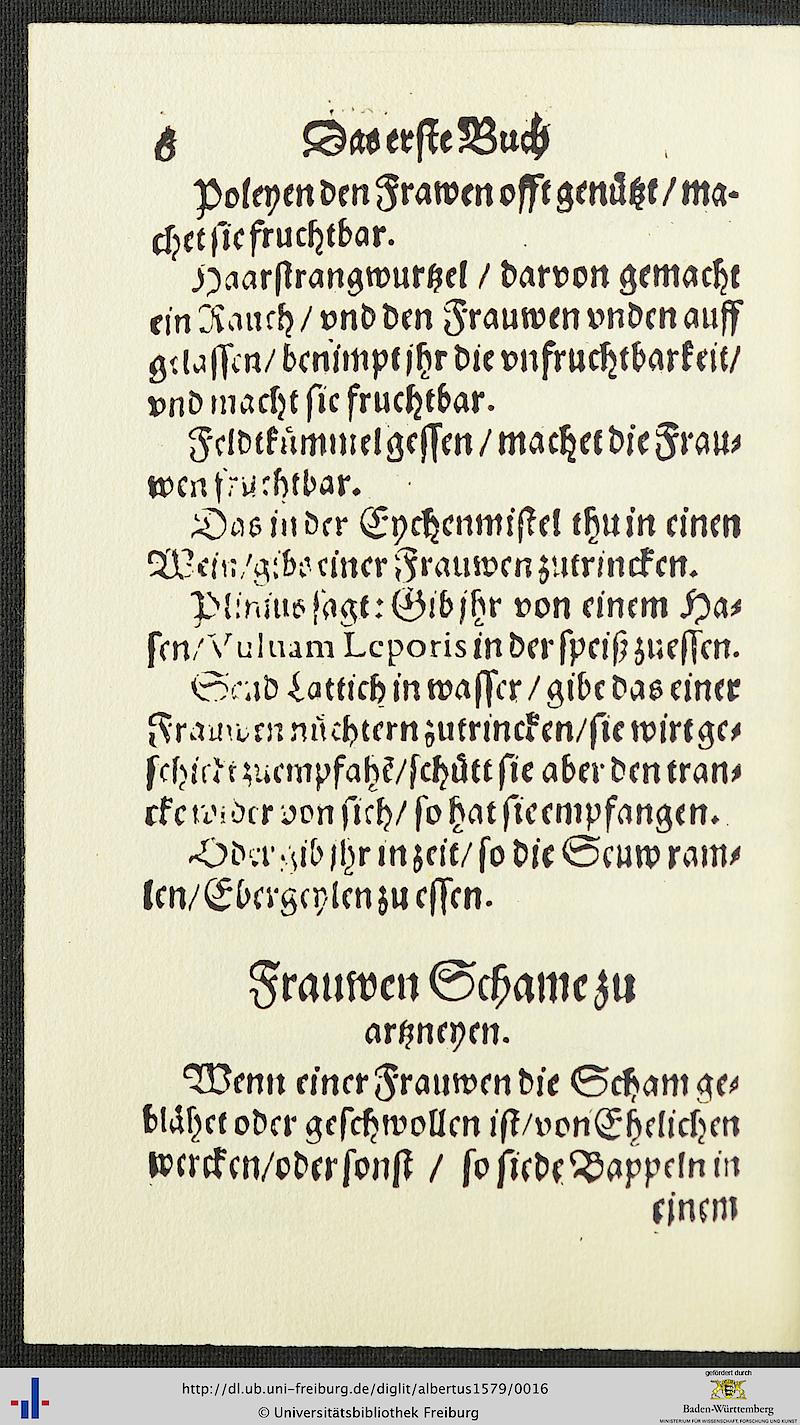 6 Das erste Buch
Poleyen den Frawen offt genützt / ma-
chet sie fruchtbar.
Haarstrangwurtzel / darvon gemacht
ein Rauch / vnd den Frauwen vnden auff
gelassen / benimpt jhr die vnfruchtbarkeit /
vnd macht sie fruchtbar.
Feldtkümmel gessen / machet die Frau-
wen fruchtbar.
Das in der Eychenmistel thu in einen
Wein / gibs einer Frauwen zutrincken.
Plinius sagt: Gib jhr von einem Ha-
sen / Vuluam Leporis in der speiß zuessen.
Seud Lattich in wasser / gibe das einer
Frauwen nüchtern zutrincken / sie wirt ge-
schickt zuempfahẽ / schütt sie aber den tran-
cke wider von sich / so hat sie empfangen.
Oder gib jhr in zeit / so die Seuw ram-
len / Ebergeylen zu essen.
Frauwen Schame zu
artzneyen.
Wenn einer Frauwen die Scham ge-
blähet oder geschwollen ist / von Ehelichen
wercken / oder sonst / so siede Bappeln in
einem
http://dl.ub.uni-freiburg.de/diglit/albertus1579/0016
© Universitätsbibliothek Freiburg
gefördert durch
Baden-Württemberg
MINISTERIUM FÜR WISSENSCHAFT, FORSCHUNG UND KUNST